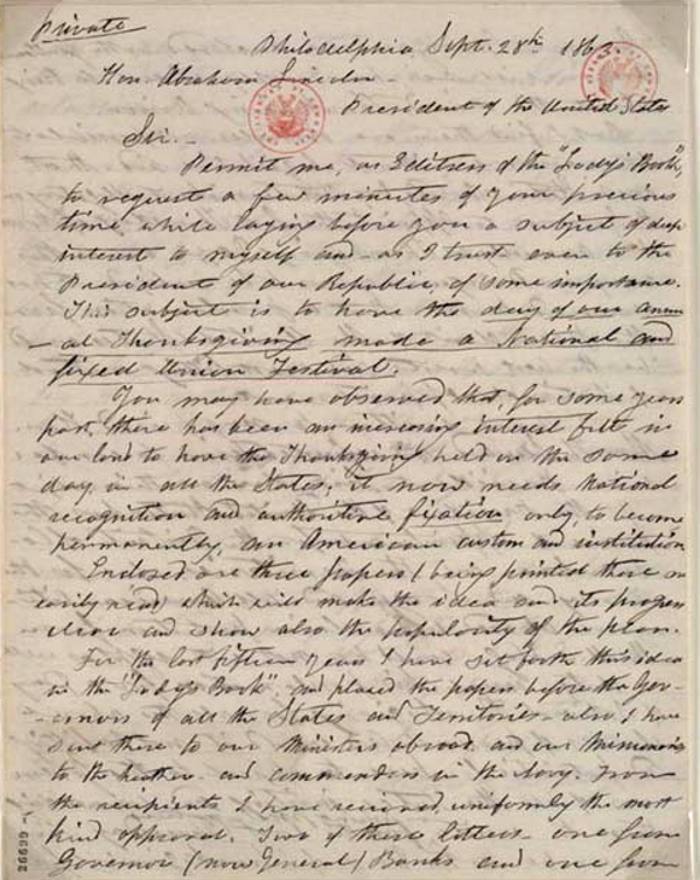 Private
Philadelphia, Sept. 28th 1863.
Hon. Abraham Lincoln -
President of the United States
Sir.-
Permit me, as Editress of the "Lady's Book",
to request a few minutes of your precious
time, while laying before you a subject of deep
interest to myself and - as I trust - even to the
President of our Republic, of some importance.
This subject is to have the day of our annu-
-al Thanksgiving made a National and
fixed Union Festival.
You may have observed that, for some years
past, there has been an increasing interest felt in
our land to have the Thanksgiving held on the same
day, in all the States; it now needs National
recognition and authoritive fixation, only, to become
permanently, an American custom and institution.
Enclosed are three papers (being printed these are
easily read) which will make the idea and its progress
clear and show also the popularity of the plan.
For the last fifteen years I have set forth this idea
in the "Lady's Book", and placed the papers before the Gov-
-ernors of all the States and Territories - also I have
sent these to our Ministers abroad, and our Missionaries
to the heathen - and commanders in the Navy. From
the recipients I have received, uniformly the most
kind approval. Two of these letters, one from
Governor (now General) Banks and one from
26699